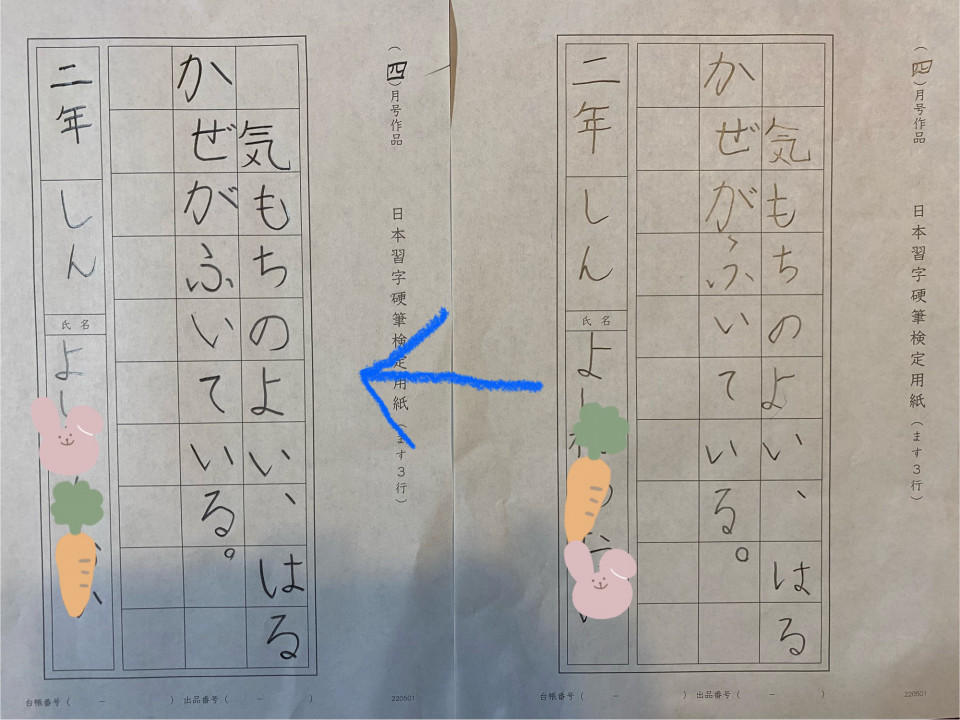 （四）月号作品　日本習字硬筆検定用紙（ます３行）
気もちのよい、はる
かぜがふいている。
二年　しん
氏名
よ
台帳番号（　－　）　出品番号（　－　）
220501
（四）月号作品　日本習字硬筆検定用紙（ます３行）
気もちのよい、はる
かぜがふいている。
二年　しん
氏名
よし
台帳番号（　－　）　出品番号（　－　）
220501